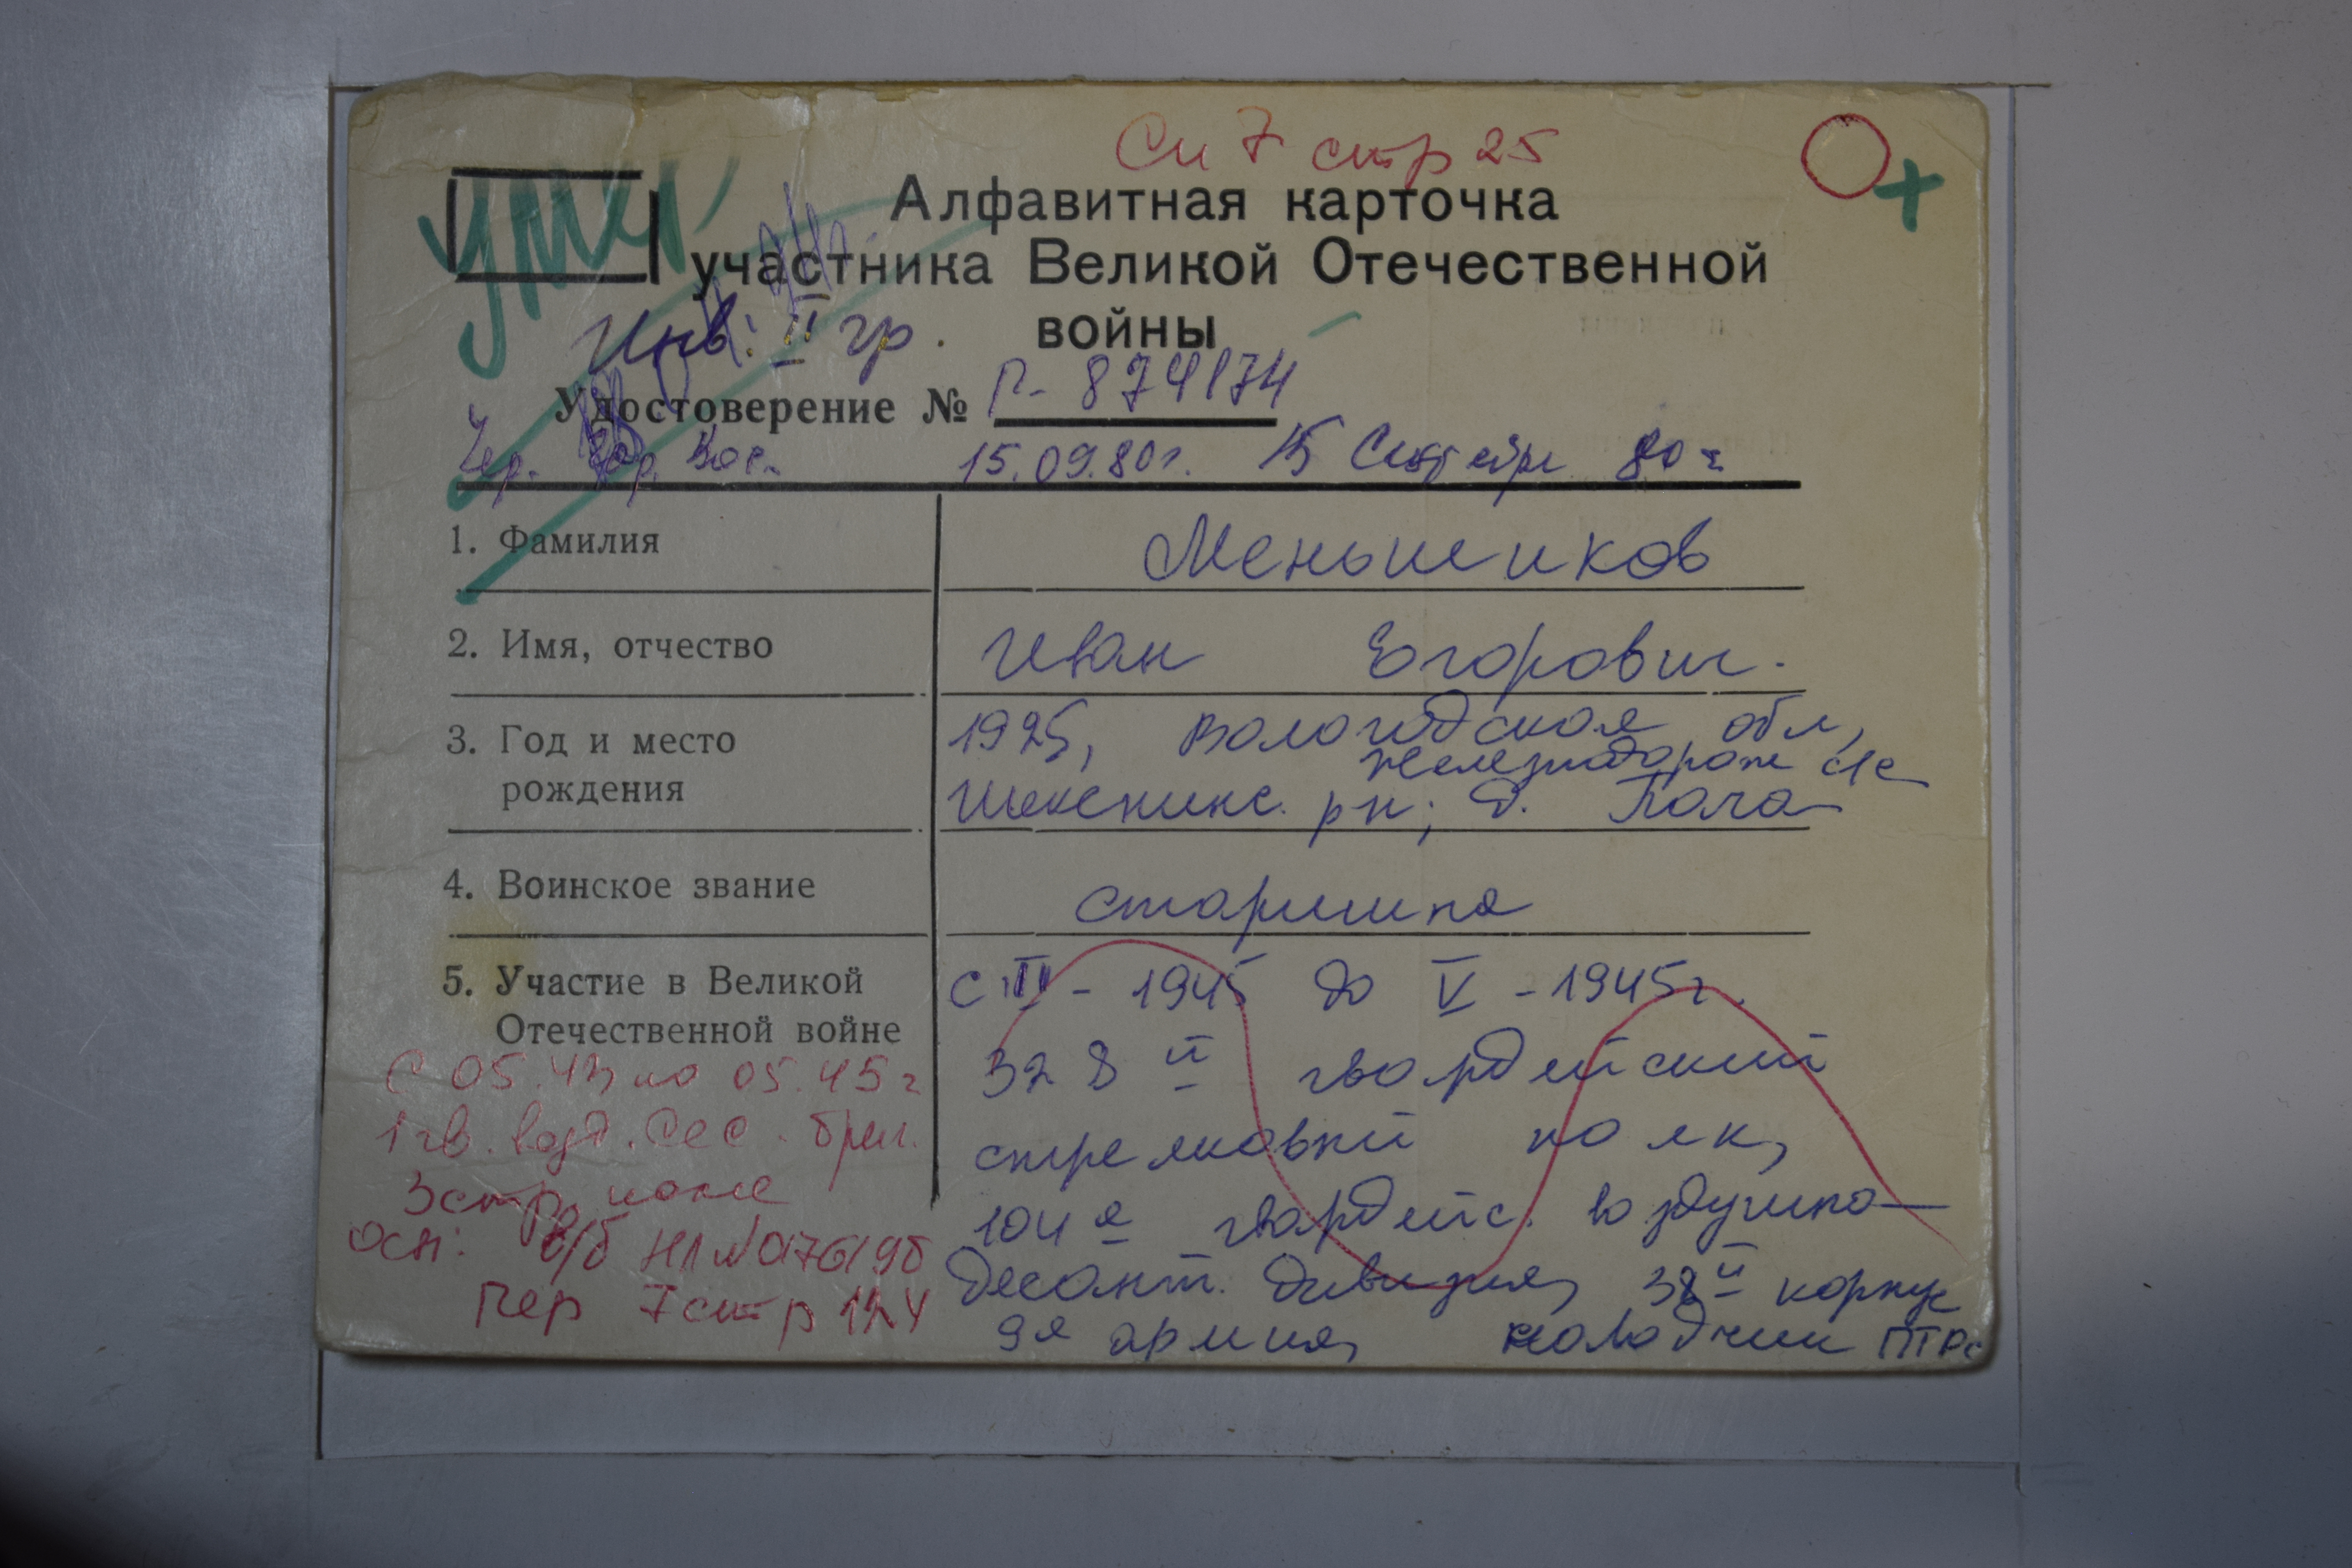 Сп 7 стр 25
Алфавитная карточка
участника Великой Отечественной
войны
умер
Инв. II гр.
Удостоверение № Р- 874174
Чер. Гор. Вое. 15.09.80г. 15 Сентября 80 г
1. Фамилия Меньшиков
2. Имя, отчество Иван Егорович.
3. Год и место 1925, Вологодская обл,
железнодорож
рождения Шекснинс. рн, д.
4. Воинское звание старшина
5. Участие в Великой с III - 1945 до V - 1945г.
Отечественной войне 328 й гвардейский
С 05.43 по 05.45 г
1 гв. возд. дес. бриг. стрелковый полк,
3 стр. полк 104 я гвардейс. воздушно-
Осн: в/б НЛ №0176196 десант. дивизия, 38 й корпус
Пер 7 стр 124 9я армия, наводчик ПТР